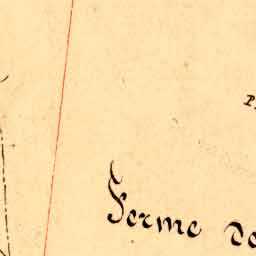 P.
Ferme de